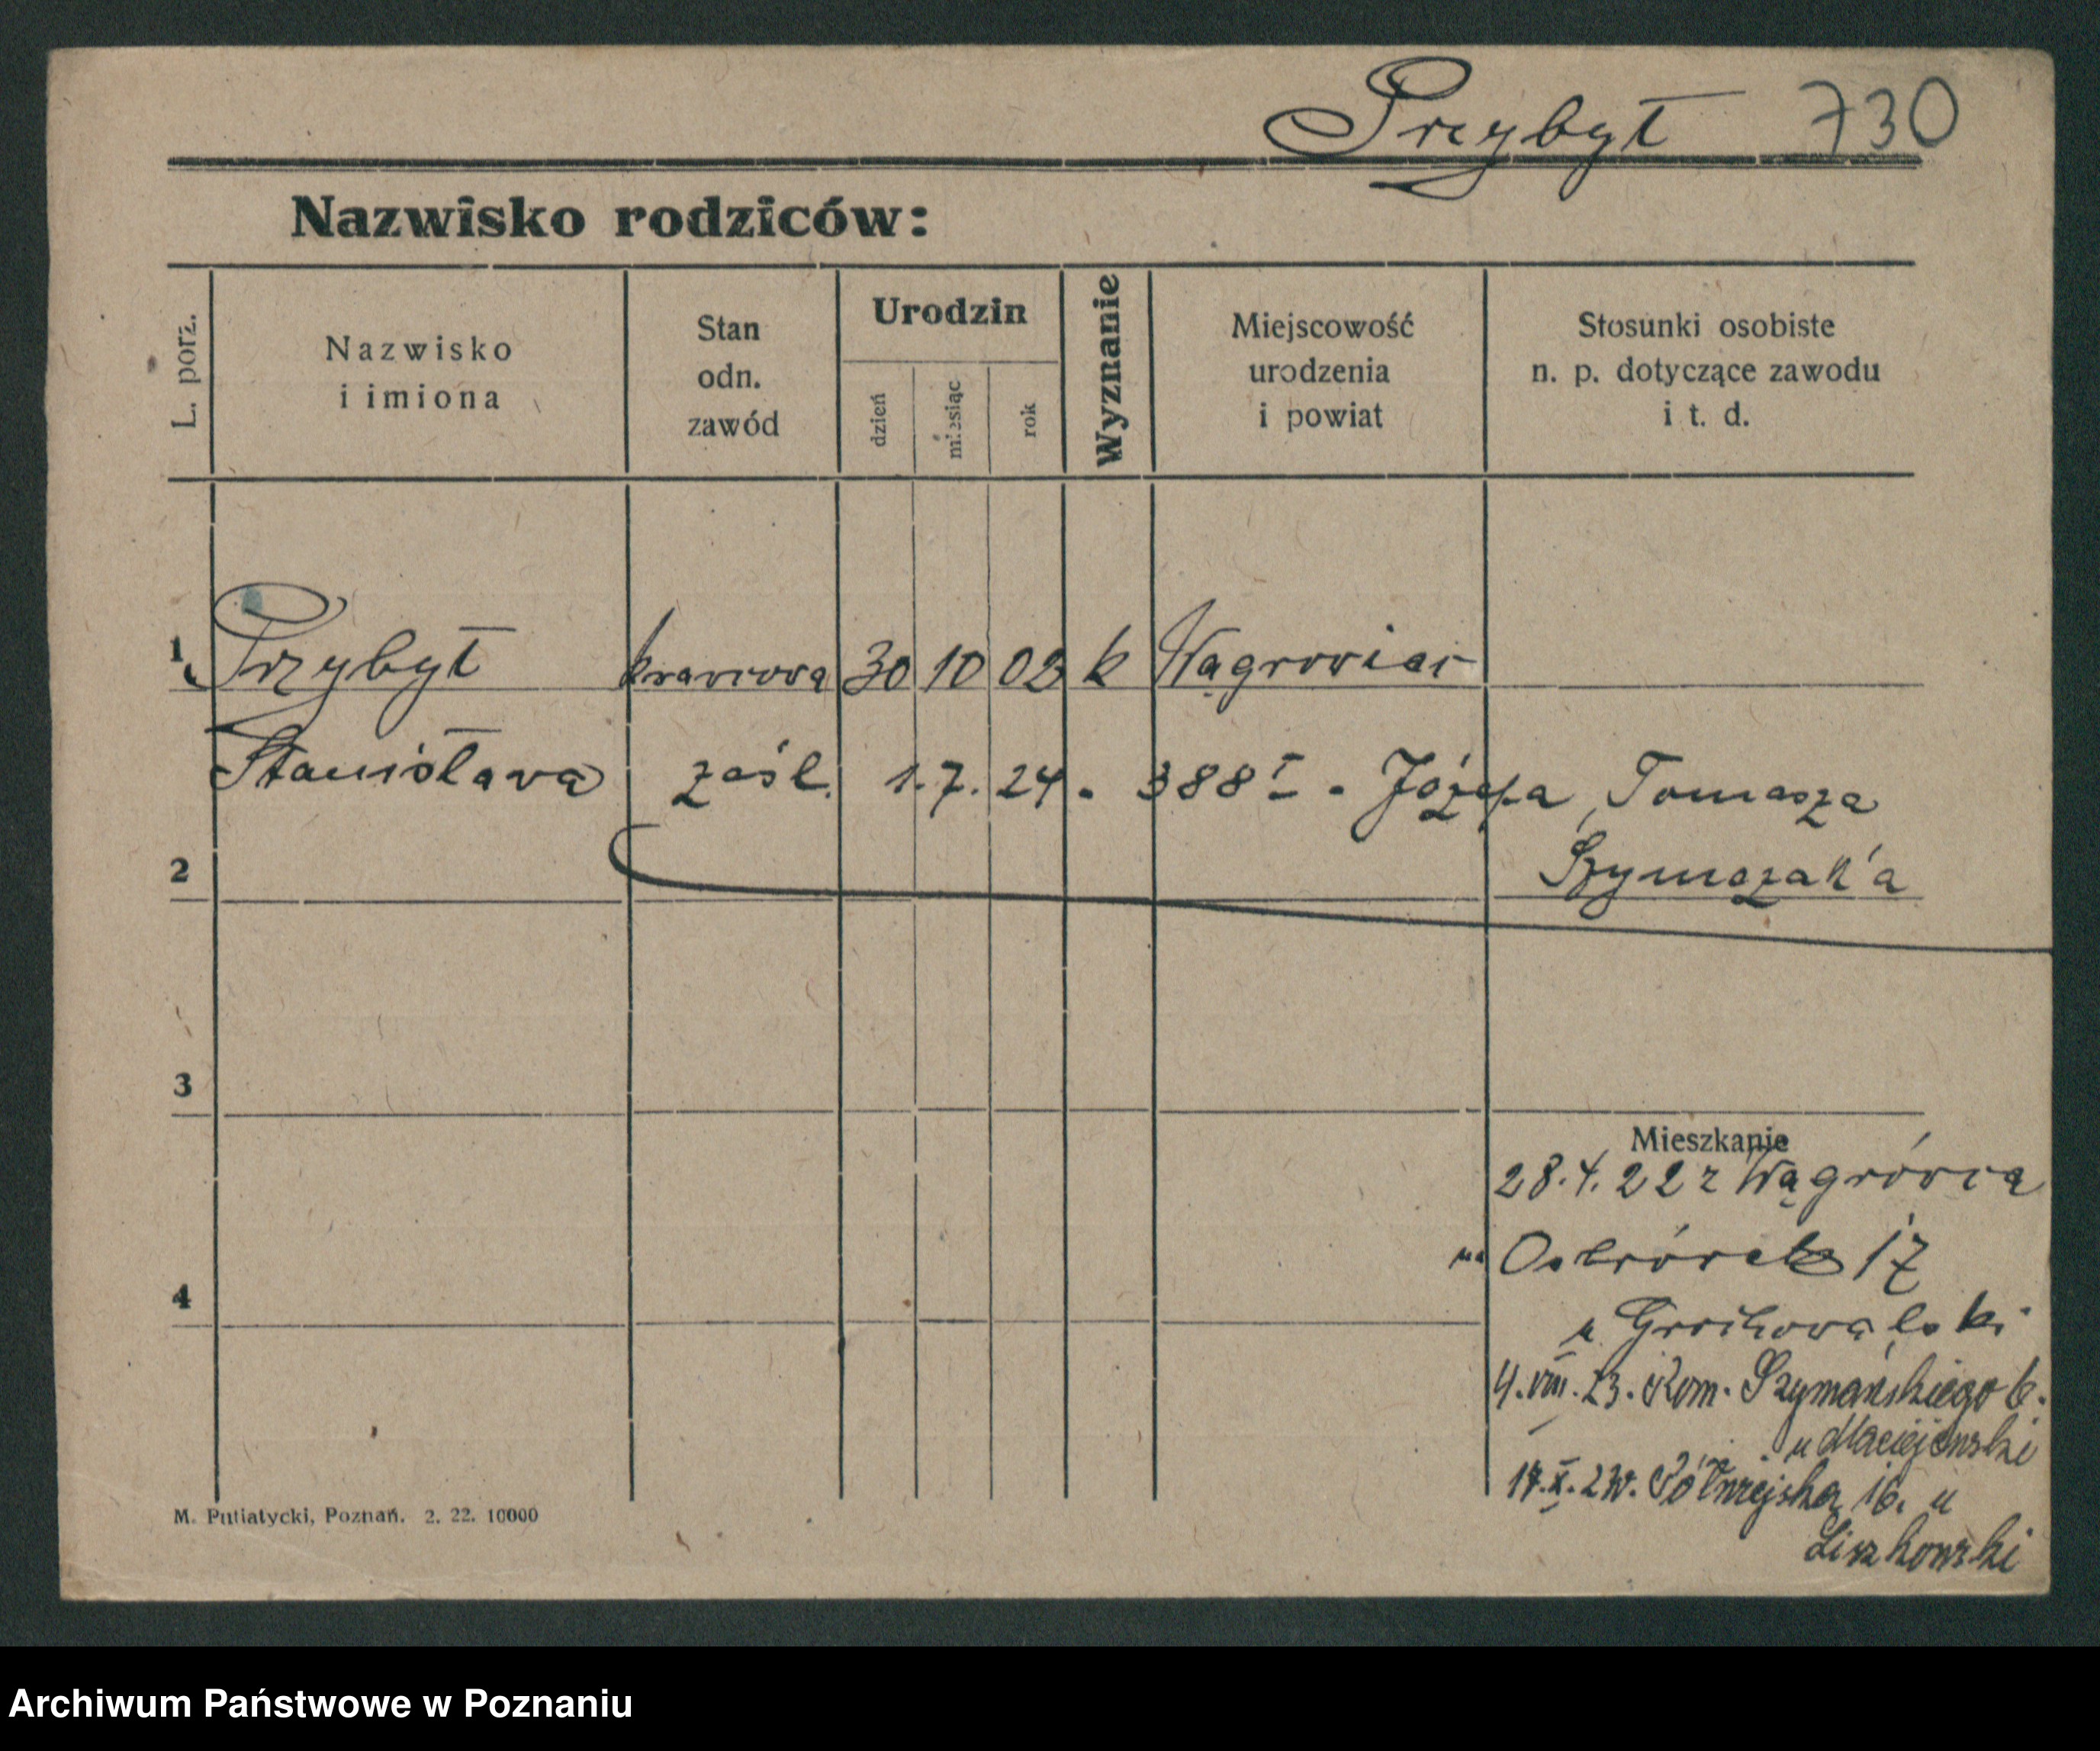 Przybył 730
Nazwisko rodziców:
L. porz.
Nazwisko
i imiona
Stan
odn.
zawód
Urodzin
dzień
miesiąc
rok
Wyznanie
Miejscowość
urodzenia
i powiat
Stosunki osobiste
n. p. dotyczące zawodu
i t. d.
1 Przybył krawcowa 30 10 02 k Wągrowiec
Stanisława zaśl. 1.7.24. 388 I. Józefa Tomasza
Szymczak'a
2
3
Mieszkanie
28.4.22 z Wągrówca
na Ostrówek 17
4
u
4.VIII.23. Rom. Szymańskiego 6.
u Maciejewski
17.X.23r. Półwiejska 16. u
Liszkowski
M. Putiatycki, Poznań. 2. 22. 10000
Archiwum Państwowe w Poznaniu